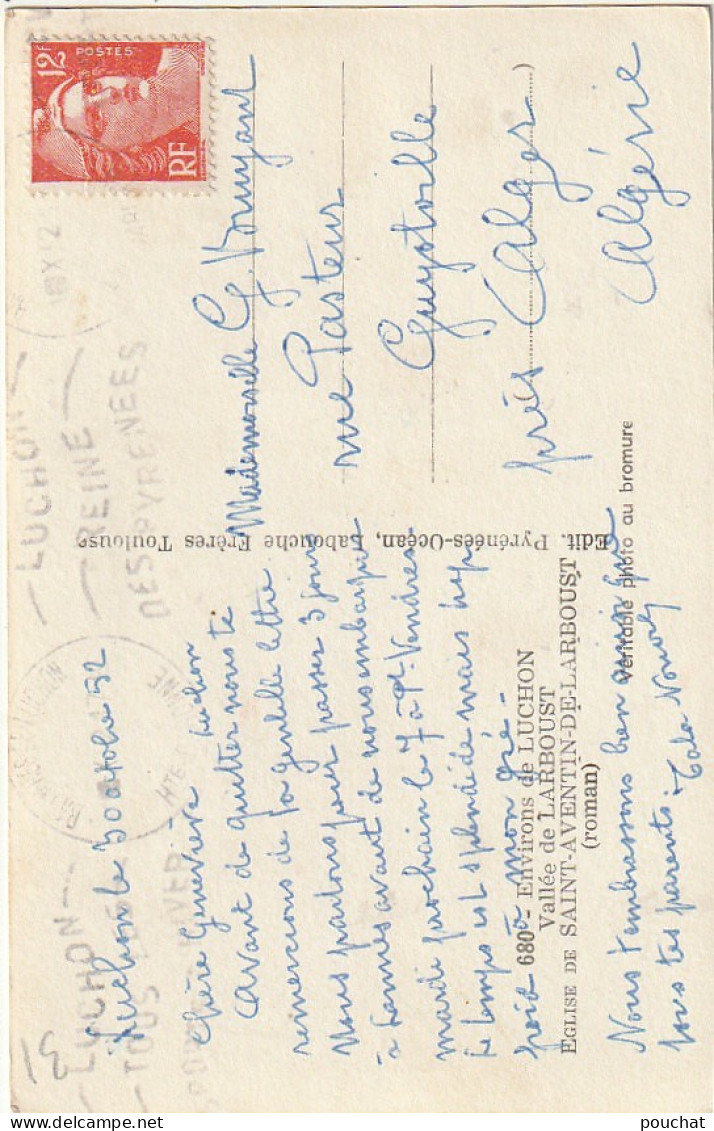 Luchon le 30 octobre 52
Chère Geneviève
Avant de quitter Luchon nous te
remercions de ta gentille lettre
Nous partons pour passer 3 jours
à Lannes avant de nous embarquer
mardi prochain le 7 à Pt-Vendres
Le temps est splendide mais trop
froid à mon gré -
Nous t'embrassons bien ainsi que
tous tes parents.
Mademoiselle G.
rue Pasteur
Guyotville
près (Alger)
Algérie
680 - Environs de LUCHON
Vallée de LARBOUST
EGLISE DE SAINT-AVENTIN-DE-LARBOUST
(roman)
Edit. Pyrénées-Océan, Labouche Frères Toulouse
Véritable photo au bromure
12F
POSTES
RF
LUCHON
REINE
DES PYRENEES
LUCHON
TOUS
HIVER
HTE
31
pouchat